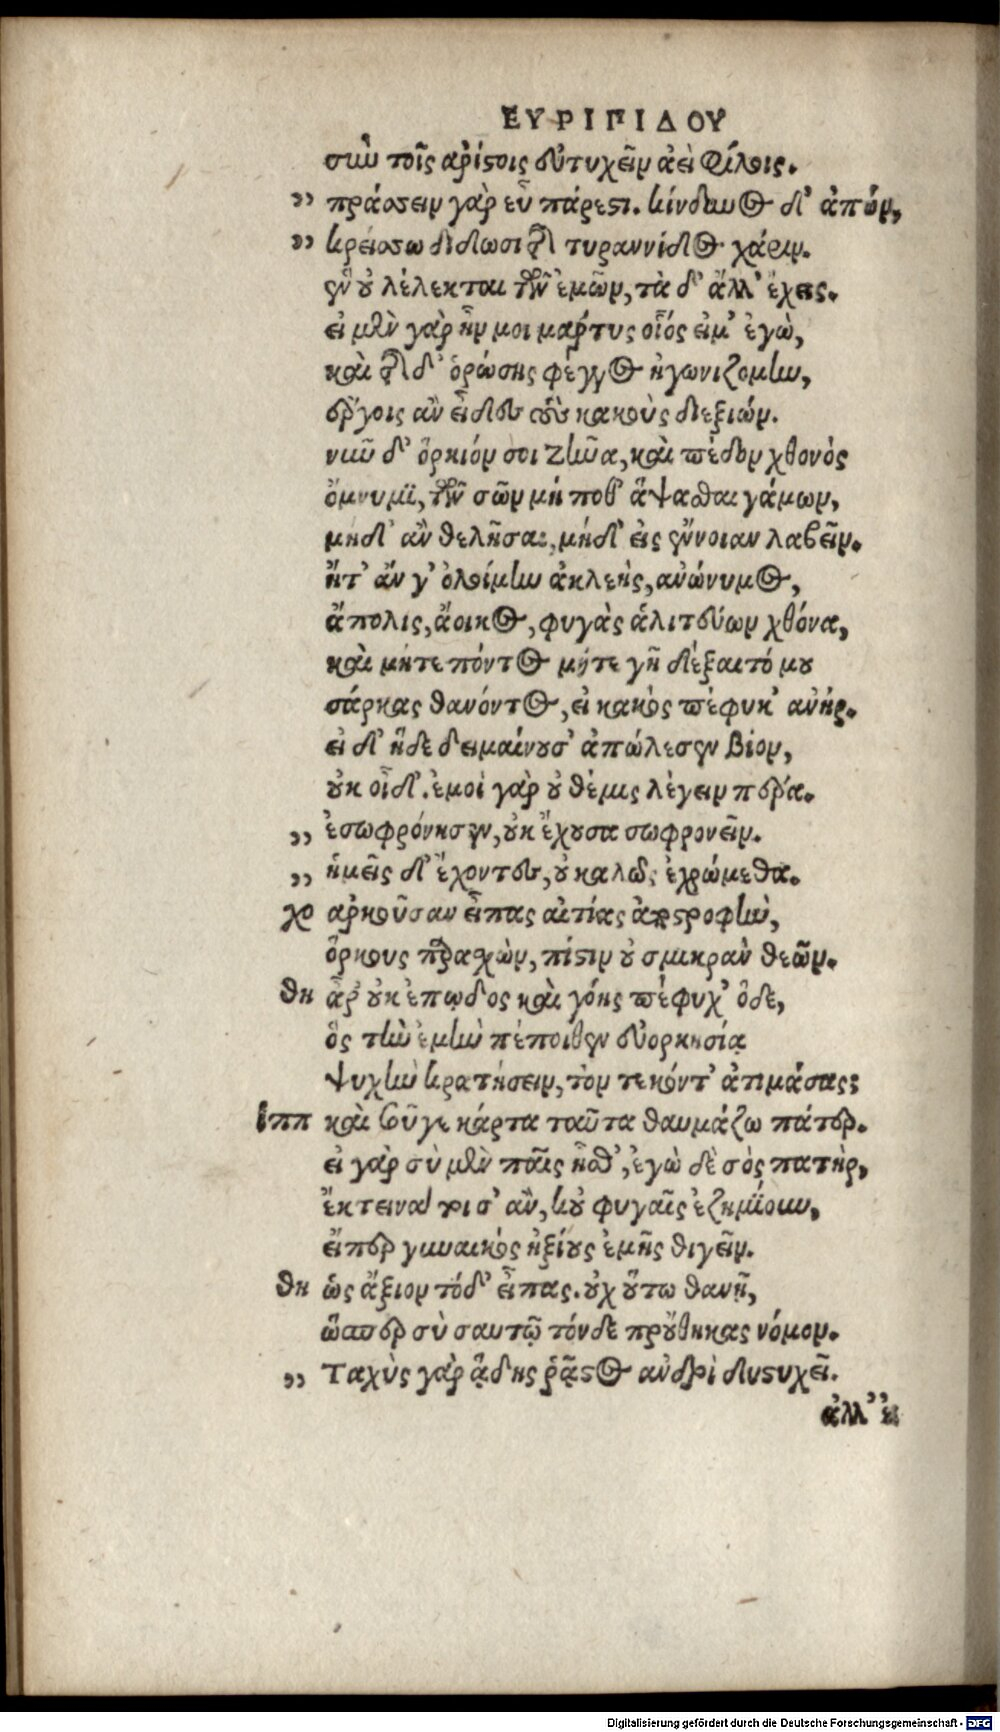 ΕΥΡΙΠΙΔΟΥ
σὺν τοῖς ἀρίστοις εὐτυχεῖν ἀεὶ φίλοις.
„ πράσσειν γὰρ εὖ πάρεστι. κίνδυνος δ' ἀπὼν,
„ κρείσσω δίδωσι τῆς τυραννίδος χάριν.
ἓν οὐ λέλεκται τῶν ἐμῶν, τὰ δ' ἄλλ' ἔχεις.
εἰ μὲν γὰρ ἦν μοι μάρτυς οἷός εἰμ' ἐγὼ,
καὶ τῆς δ' ὁρώσης φέγγος ἠγωνιζόμην,
ἔργοις ἂν εἶδες τοὺς κακοὺς διεξιών.
νῦν δ' ὅρκιόν σοι Ζῆνα, καὶ πέδον χθονὸς
ὄμνυμι, τῶν σῶν μή ποθ' ἅψασθαι γάμων,
μηδ' ἂν θελῆσαι, μηδ' εἰς ἔννοιαν λαβεῖν.
ἤτ' ἄν γ' ὀλοίμην ἀκλεὴς, ἀνώνυμος,
ἄπολις, ἄοικος, φυγὰς ἀλιτεύων χθόνα,
καὶ μήτε πόντος μήτε γῆ δέξαιτό μου
σάρκας θανόντος, εἰ κακὸς πέφυκ' ἀνήρ.
εἰ δ' ἥδε δειμαίνουσ' ἀπώλεσεν βίον,
οὐκ οἶδ'. ἐμοὶ γὰρ οὐ θέμις λέγειν πέρα.
„ ἐσωφρόνησεν, οὐκ ἔχουσα σωφρονεῖν.
„ ἡμεῖς δ' ἔχοντες, οὐ καλῶς ἐχρώμεθα.
χο ἀρκοῦσαν εἶπας αἰτίας ἀποστροφὴν,
ὅρκους παρασχὼν, πίστιν οὐ σμικρὰν θεῶν.
θη ἆρ' οὐκ ἐπῳδὸς καὶ γόης πέφυχ' ὅδε,
ὃς τὴν ἐμὴν πέποιθεν εὐορκησίᾳ
ψυχὴν κρατήσειν, τὸν τεκόντ' ἀτιμάσας;
ἱππ καὶ σοῦγε κάρτα ταῦτα θαυμάζω πάτερ.
εἰ γὰρ σὺ μὲν παῖς ἦσθ', ἐγὼ δὲ σὸς πατὴρ,
ἔκτεινα τοί σ' ἂν, κοὐ φυγαῖς ἐζημίουν,
εἴπερ γυναικὸς ἠξίους ἐμῆς θιγεῖν.
θη ὡς ἄξιον τόδ' εἶπας. οὐχ οὕτω θανῇ,
ὥσπερ σὺ σαυτῷ τόνδε προὔθηκας νόμον.
„ Ταχὺς γὰρ ᾅδης ῥᾷστος ἀνδρὶ δυστυχεῖ.
ἀλλ' ἐ
Digitalisierung gefördert durch die Deutsche Forschungsgemeinschaft - DFG